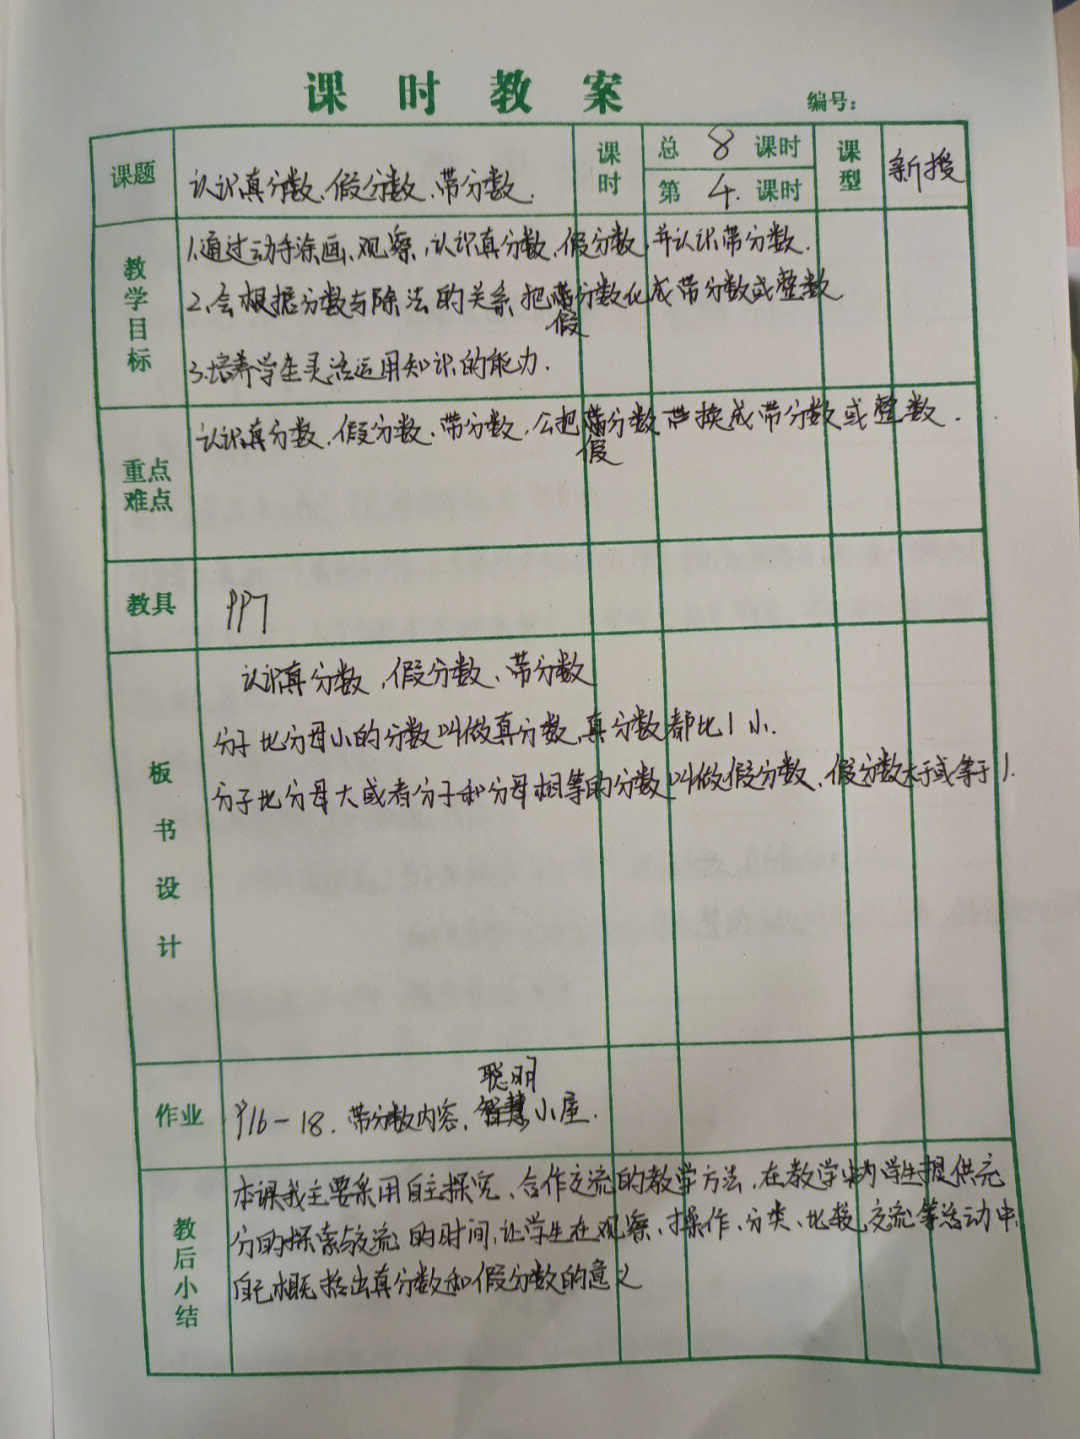 课时教案
编号：
课题 认识真分数、假分数、带分数. 课时 总 8 课时 课型 新授
第 4. 课时
教学目标
1.通过动手涂画、观察,认识真分数、假分数,并认识带分数.
2.会根据分数与除法的关系,把假分数化成带分数或整数
3.培养学生灵活运用知识的能力.
重点难点
认识真分数、假分数、带分数.会把假分数 换成带分数或整数.
教具 PPT
板书设计
认识真分数、假分数、带分数
分子比分母小的分数叫做真分数,真分数都比1小.
分子比分母大或者分子和分母相等的分数叫做假分数、假分数大于或等于1.
作业
聪明
P16－18.带分数内容, 智慧小屋.
教后小结
本课我主要采用自主探究、合作交流的教学方法,在教学中为学生提供充
分的探索与交流的时间,让学生在观察、操作、分类、比较、交流等活动中,
自己概括出真分数和假分数的意义